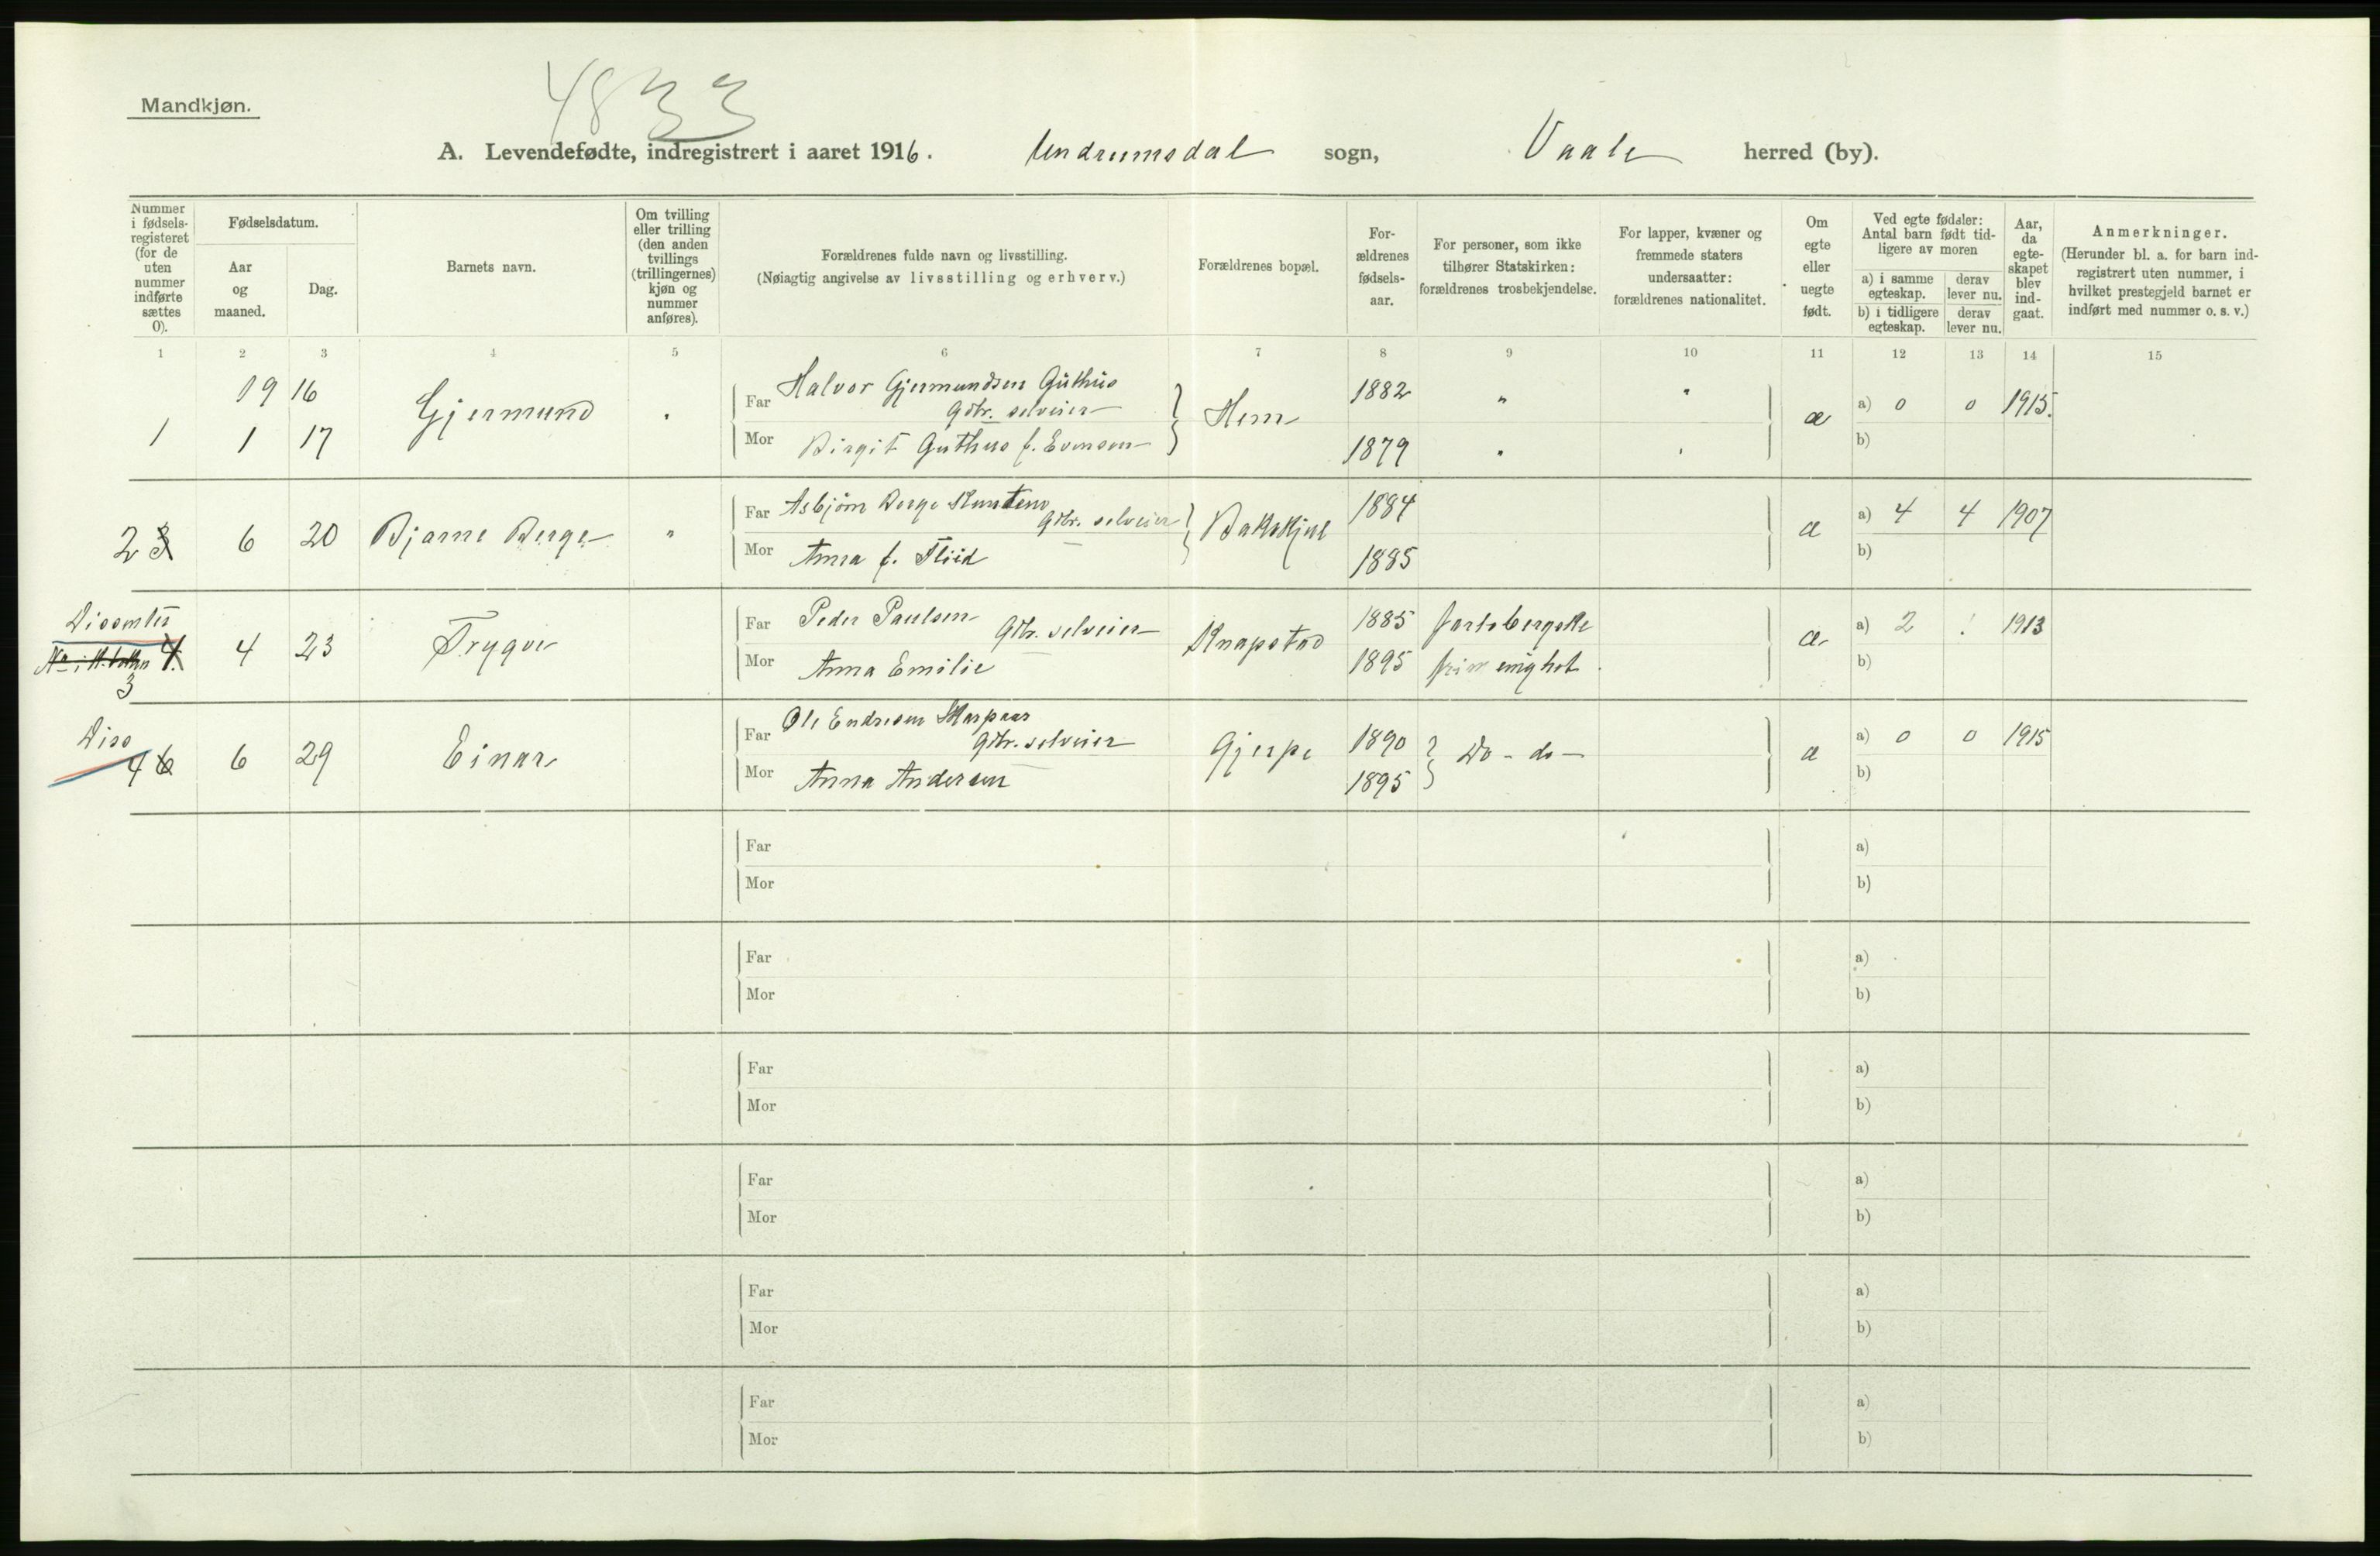 4833
Mandkjøn.
A. Levendefødte, indregistrert i aaret 1916. Undrumsdal sogn, Vaale herred (by).
Nummer i fødselsregisteret (for de uten nummer indførte sættes 0).
Fødselsdatum.
Aar og maaned.
Dag.
Barnets navn.
Om tvilling eller trilling (den anden tvillings (trillingernes) kjøn og nummer anføres).
Forældrenes fulde navn og livsstilling.
(Nøiagtig angivelse av livsstilling og erhverv.)
Forældrenes bopæl.
Forældrenes fødselsaar.
For personer, som ikke tilhører Statskirken: forældrenes trosbekjendelse.
For lapper, kvæner og fremmede staters undersaatter: forældrenes nationalitet.
Om egte eller uegte født.
Ved egte fødsler: Antal barn født tidligere av moren
a) i samme egteskap. derav lever nu.
b) i tidligere egteskap. derav lever nu.
Aar, da egteskapet blev indgaat.
Anmerkninger.
(Herunder bl. a. for barn indregistrert uten nummer, i hvilket prestegjeld barnet er indført med nummer o. s. v.)
1 2 3 4 5 6 7 8 9 10 11 12 13 14 15
1916
1 1 17 Gjermund " Far Halvor Gjermundsen Guthus Gbr. selveier Hem 1882 " " æ a) 0 0 1915.
Mor Birgit Guthus f. Evensen 1879 " " b)
2 3 6 20 Bjarne Berge " Far Asbjørn Berge Knutsen Gbr. selveier Bakskjul 1884 æ a) 4 4 1907
Mor Anna f. Fliid 1885 b)
Dissenter
4 3 4 23 Trygve Far Peder Paulsen Gbr. selveier Knapstad 1885 Jarlsbergske æ a) 2 ! 1913
Mor Anna Emilie 1895 frim enighet b)
Diss
4 6 6 29 Einar Far Ole Endresen Gbr. selveier Gjerpe 1890 Do - do - æ a) 0 0 1915
Mor Anna Andersen 1895 b)
Far a)
Mor b)
Far a)
Mor b)
Far a)
Mor b)
Far a)
Mor b)
Far a)
Mor b)
Far a)
Mor b)